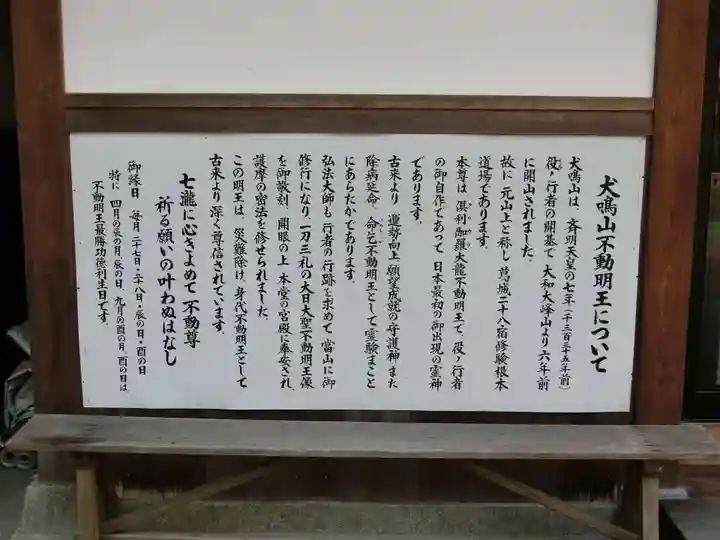 犬鳴山不動明王について
犬鳴山は、斉明天皇の七年(千三百三十五年前)
役ノ行者の開基で、大和大峰山より六年前
に開山されました。
故に 元山上と称し 葛城二十八宿修験根本
道場であります。
本尊は 倶利伽羅大龍不動明王で、役ノ行者
の御自作であって 日本最初の御出現の霊神
であります。
古来より 運勢向上、願望成就の守護神 また
除病延命、命乞不動明王として霊験まこと
にあらたかであります。
弘法大師も 行者の行跡を求めて 當山に御
修行になり、一刀三礼の大日大聖不動明王像
を御敬刻、開眼の上 本堂の宮殿に奉安され
護摩の密法を修せられました。
この明王は、災難除け、身代不動明王として
古来より深く尊信されています。
七瀧に心きよめて 不動尊
祈る願いの叶わぬはなし
御縁日 毎月 二十七日・二十八日・辰の日・酉の日
特に 四月の辰の月、辰の日、九月の酉の月、酉の日は
不動明王最勝功徳利生日です。